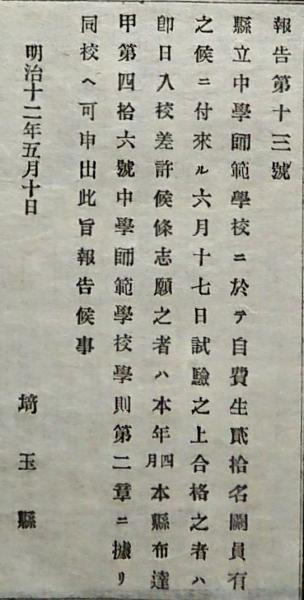 報告第十三號
縣立中學師範學校ニ於テ自費生貳拾名闕員有
之候ニ付來ル六月十七日試驗之上合格之者ハ
卽日入校差許候條志願之者ハ本年四月本縣布達
甲第四拾六號中學師範學校學則第二章ニ據リ
同校ヘ可申出此旨報告候事
明治十二年五月十日
埼玉縣